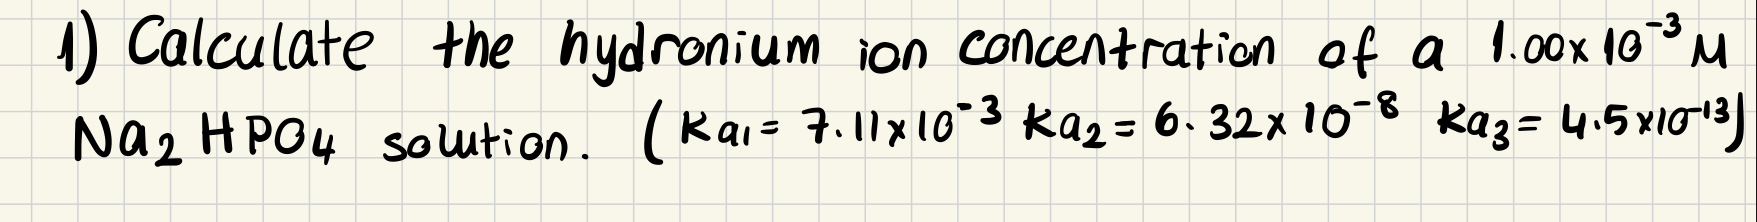 1) Calculate the hydronium ion concentration of a 1.00x10⁻³ M
Na₂HPO₄ solution. (Ka₁ = 7.11x10⁻³ Ka₂ = 6.32x10⁻⁸ Ka₃ = 4.5x10⁻¹³)